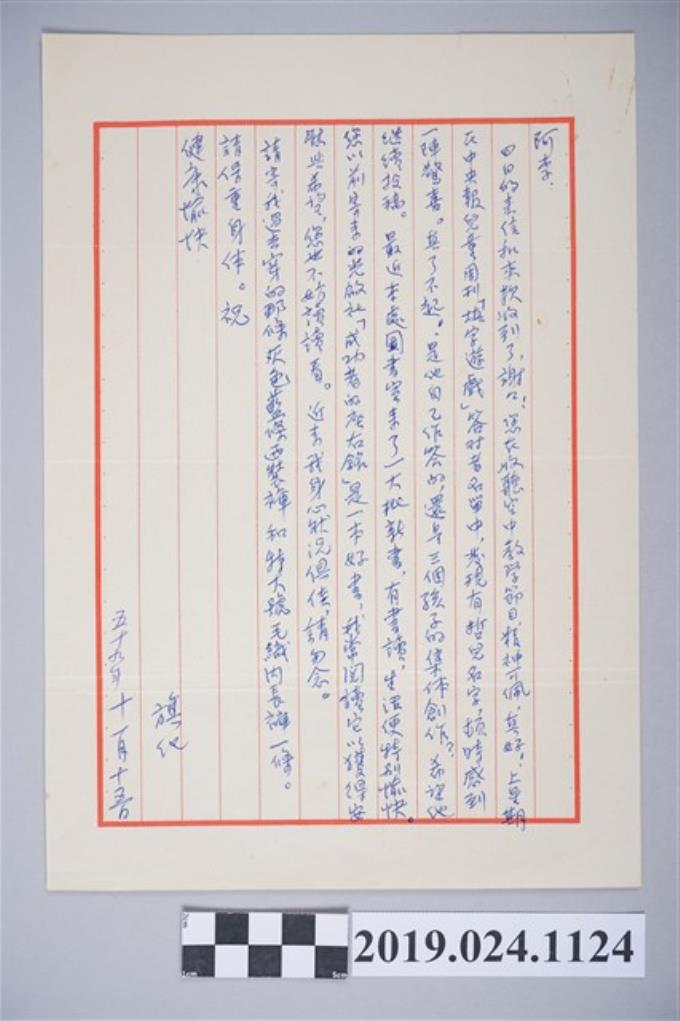 阿李:
四日的來信和來款收到了,謝謝!您在收聽空中教學節目,精神可佩,真好!上星期
在中央報兒童周刊「填字遊戲」答對者名單中,發現有哲兒名字,頓時感到
一陣驚喜。真了不起!是他自己作答的,還是三個孩子的集体創作?希望他
繼續投稿。最近本處圖書室來了一大批新書,有書讀,生活便特別愉快。
您以前寄來的光啟社「成功者的座右銘」是一本好書,我常閱讀它以獲得安
慰与希望,您也不妨讀讀看。近來我身心狀況俱佳,請勿念。
請寄我過去穿的那條灰色藍條西裝褲和特大號毛織內長褲一條。
請保重身体。祝
健康愉快
旗化
五十九年十一月十五日
2019.024.1124
1cm
5cm